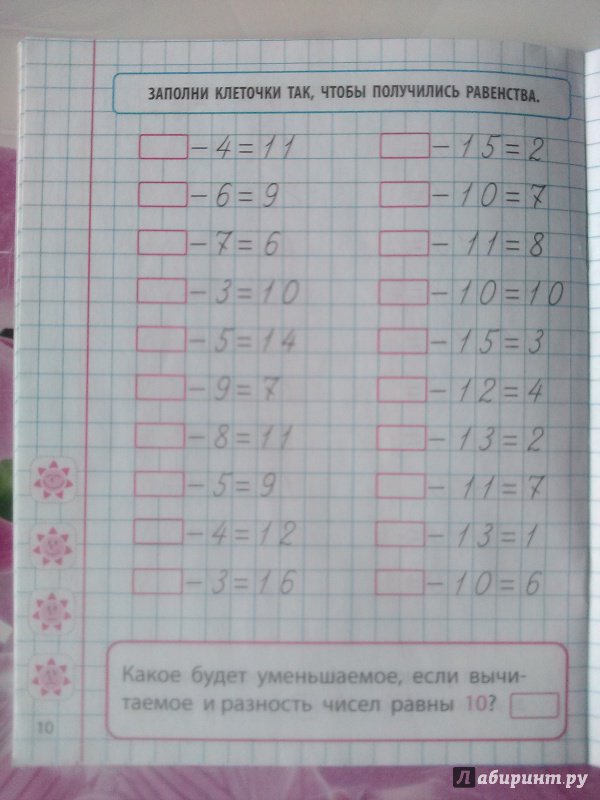 ЗАПОЛНИ КЛЕТОЧКИ ТАК, ЧТОБЫ ПОЛУЧИЛИСЬ РАВЕНСТВА.
- 4 = 11
- 6 = 9
- 7 = 6
- 3 = 10
- 5 = 14
- 9 = 7
- 8 = 11
- 5 = 9
- 4 = 12
- 3 = 16
- 15 = 2
- 10 = 7
- 11 = 8
- 10 = 10
- 15 = 3
- 12 = 4
- 13 = 2
- 11 = 7
- 13 = 1
- 10 = 6
Какое будет уменьшаемое, если вычи-
таемое и разность чисел равны 10?
10
Лабиринт.ру